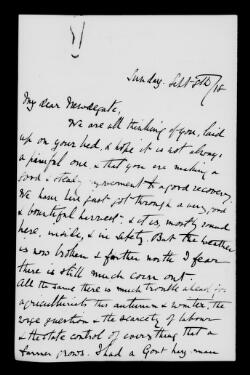 Sunday. Sept 8th/18
My dear Newdegate,
We are all thinking of you, laid
up on your bed, & hope it is not always
a painful one & that you are making a
good & steady movement to a good recovery.
We have here just got through a very good
& bountiful harvest, & it is, mostly sound
here, inside, & in safety. But the weather
is now broken & further north I fear
there is still much corn out.
All the same there is much trouble ahead for
agriculturists this autumn & winter, the
wage question & the scarcity of labour
& the state control of everything that a
farmer grows. I had a Govt hay-man